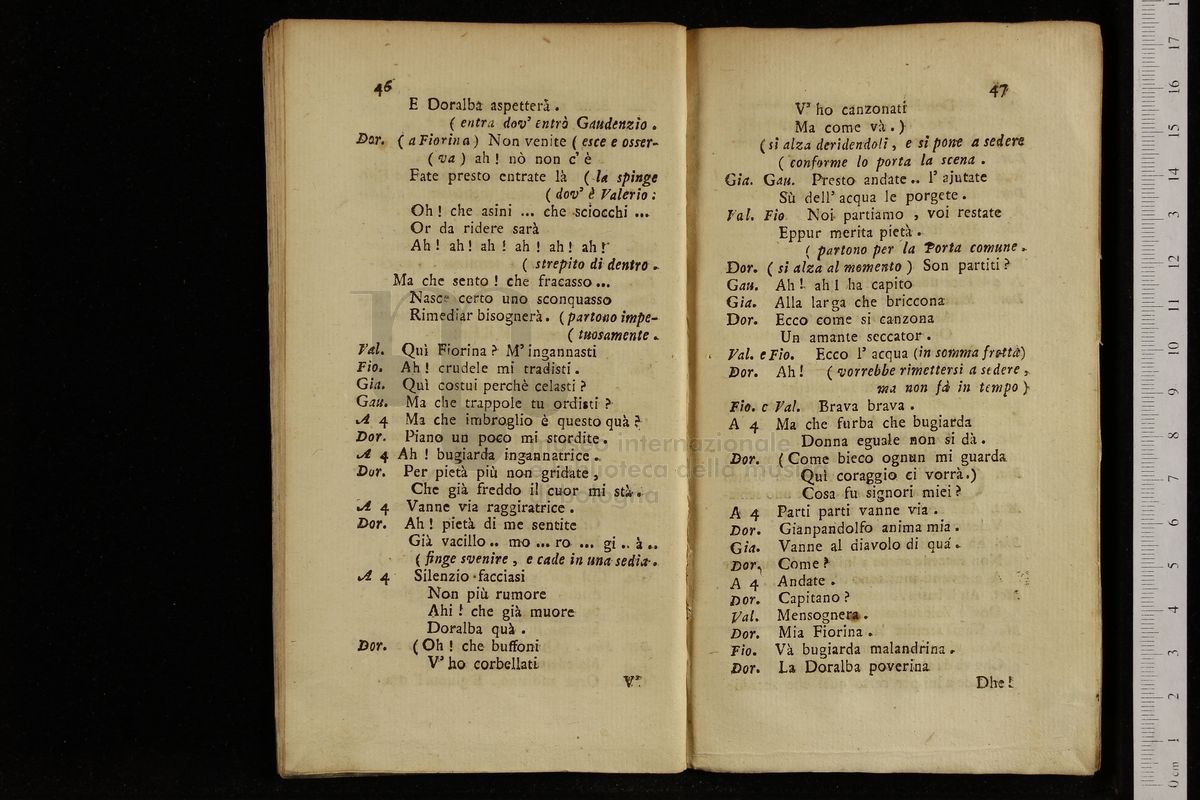 46
E Doralba aspetterà.
( entra dov' entrò Gaudenzio.
Dor. ( a Fiorina ) Non venite ( esce e osser-
( va ) ah! nò non c' è
Fate presto entrate là ( la spinge
( dov' è Valerio:
Oh! che asini ... che sciocchi ...
Or da ridere sarà
Ah! ah! ah! ah! ah! ah!
( strepito di dentro.
Ma che sento! che fracasso ...
Nasce certo uno sconquasso
Rimediar bisognerà. ( partono impe-
( tuosamente.
Val. Quì Fiorina? M' ingannasti
Fio. Ah! crudele mi tradisti.
Gia. Quì costui perchè celasti?
Gau. Ma che trappole tu ordisti?
A 4 Ma che imbroglio è questo quà?
Dor. Piano un poco mi stordite.
A 4 Ah! bugiarda ingannatrice.
Dor. Per pietà più non gridate,
Che già freddo il cuor mi stà.
A 4 Vanne via raggiratrice.
Dor. Ah! pietà di me sentite
Già vacillo .. mo ... ro ... gi .. à ..
( finge svenire, e cade in una sedia.
A 4 Silenzio facciasi
Non più rumore
Ahi! che già muore
Doralba quà.
Dor. (Oh! che buffoni
V' ho corbellati
V'
47
V' ho canzonati
Ma come và.)
( si alza deridendoli, e si pone a sedere
( conforme lo porta la scena.
Gia. Gau. Presto andate .. l' ajutate
Sù dell' acqua le porgete.
Val. Fio Noi partiamo, voi restate
Eppur merita pietà.
( partono per la Porta comune.
Dor. ( si alza al momento ) Son partiti?
Gau. Ah! ah! ha capito
Gia. Alla larga che briccona
Dor. Ecco come si canzona
Un amante seccator.
Val. e Fio. Ecco l' acqua (in somma fretta)
Dor. Ah! ( vorrebbe rimettersi a sedere,
ma non fà in tempo )
Fio. e Val. Brava brava.
A 4 Ma che furba che bugiarda
Donna eguale non si dà.
Dor. (Come bieco ognun mi guarda
Quì coraggio ci vorrà.)
Cosa fu signori miei?
A 4 Parti parti vanne via.
Dor. Gianpandolfo anima mia.
Gia. Vanne al diavolo di quá.
Dor. Come?
A 4 Andate.
Dor. Capitano?
Val. Mensognera.
Dor. Mia Fiorina.
Fio. Và bugiarda malandrina.
Dor. La Doralba poverina
Dhe!
museo internazionale
e biblioteca della musica
di bologna
0 cm 1 2 3 4 5 6 7 8 9 10 11 12 13 14 15 16 17